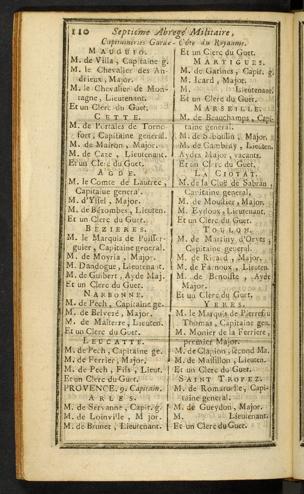 110 Septiéme Abregé Militaire,
Capitaineries Garde-Côte du Royaume.
MAUGUIO.
M. de Villa, Capitaine g.
M. le Chevalier des An-
drieux, Major.
M. le Chevalier de Mon-
tagne, Lieutenant.
Et un Clerc du Guet.
CETTE.
M. de Portales de Torno-
fort, Capitaine general.
M. de Mairon, Major.
M. de Caze, Lieutenant.
Et un Clerc du Guet.
AGDE.
M. le Comte de Lautrec,
Capitaine general.
M. d'Yssel, Major.
M. de Bezombes, Lieuten.
Et un Clerc du Guet.
BEZIERES.
M. le Marquis de Puisser-
guier, Capitaine general.
M. de Moyria, Major.
M. Dandogue, Lieutenant.
M. de Guibert, Ayde Maj.
Et un Clerc du Guet.
NARBONNE.
M. de Pech, Capitaine ge.
M. de Belveré, Major.
M. de Malterre, Lieuten.
Et un Clerc du Guet.
LEUCATTE.
M. de Pech, Capitaine ge.
M. de Ferrier, Major.
M. de Pech, Fils, Lieut.
Et un Clerc du Guet.
PROVENCE. 9. Capitain.
ARLES.
M. de Servanne, Capit. g.
M. de Loinville, Major.
M. de Brunet, Lieutenant.
Et un Clerc du Guet.
MARTIGUES.
M. de Garines, Capit. g.
M. Icard, Major.
M. Lieutenant.
Et un Clerc du Guet.
MARSEILLE.
M. de Beauchamps, Capi-
taine general.
M. de Sibullin, Major.
M. de Gumbiny, Lieuten.
Aydes Major, vacants.
Et un Clerc du Guet.
LA CIOTAT.
M. de la Clug de Sabran,
Capitaine general.
M. de Moustier, Major.
M. Eydoux, Lieutenant.
Et un Clerc du Guet.
TOULON.
M. de Martiny d'Orves,
Capitaine general.
M. de Ricard, Major.
M. de Lieuten.
M. de Benoiste, Ayde
Major.
Et un Clerc du Guet.
YERES.
M. le Marquis de Pierrefeu
Thomas, Capitaine gen.
M. Monier de la Ferriere,
premier Major.
M. de Clapion, second Ma.
M. de Massillon, Lieuten.
Et un Clerc du Guet.
SAINT TROPEZ.
M. de Romatuelle, Capi-
taine general.
M. de Gueydon, Major.
M. Lieutenant.
Et un Clerc du Guet.